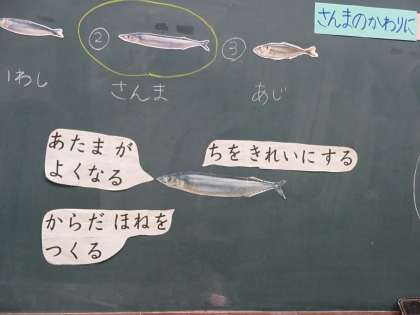 さんまのかわりに
②
③
いわし
さんま
あじ
あたまが
よくなる
ちをきれいにする
からだ ほねを
つくる